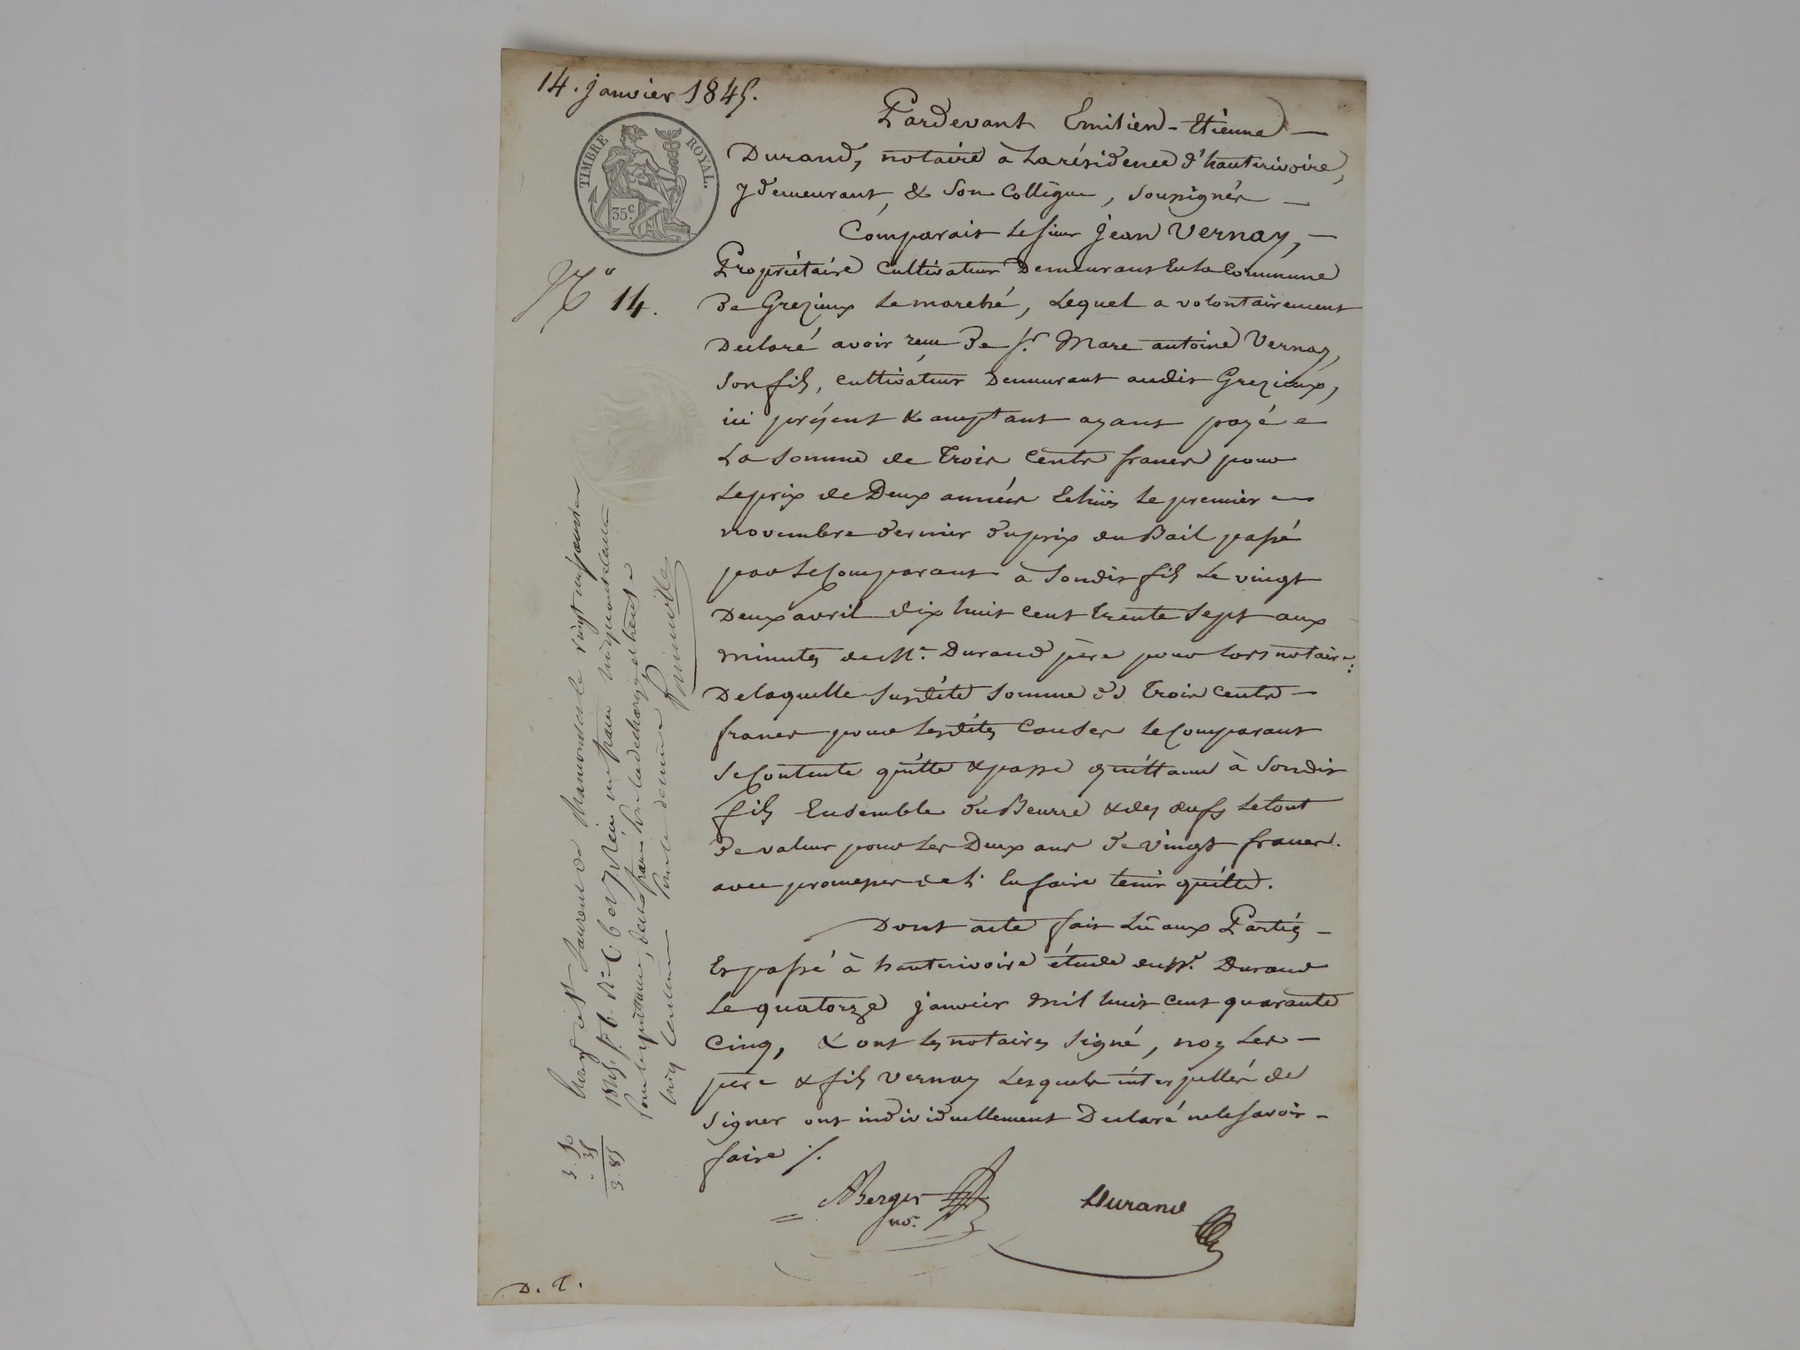 14. janvier 1845.
TIMBRE ROYAL.
35c
No 14.
Pardevant Emilien-Etienne
Durand, notaire à la résidence d'hauterivoire,
y demeurant, & son Collègue, soussignés
Comparait le sieur jean Vernay,
Propriétaire Cultivateur Demeurant en la Commune
De Grezieux le marché, Lequel a volontairement
Declaré avoir reçu De sr. Marc antoine Vernay,
son fils, cultivateur Demeurant audit Grezieux,
ici présent & acceptant ayant payé
La somme de trois cents francs pour
Le prix de Deux années Echües le premier
novembre dernier du prix du Bail passé
par le Comparant à sondit fils Le vingt
Deux avril dix huit cent trente sept aux
minutes de Me. Durand père pour lors notaire:
De laquelle susdite somme de trois cents
francs pour lesdites Causes le Comparant
se Contente quitte & passe quittance à sondit
fils Ensemble du Beurre & des œufs le tout
de valeur pour les Deux ans de vingt francs.
avec promesse de l' En faire tenir quitte.
Dont acte fait Lû aux Parties
Et passé à hauterivoire étude dudt. Durand
Le quatorze janvier mil huit cent quarante
Cinq, & ont les notaires signé, non Les
père & fils Vernay Lesquels interpellés de
signer ont individuellement Declaré ne le savoir
faire ./.
ABerger
no.
Durand
Enregistré à St Laurent de Chamousset le vingt un janvier
1845, fo. 6. Ro. C. 6 et 7, Reçu un franc cinquante centimes
pour la quittance, deux francs pour la décharge
trois centimes pour le décime
3. 50
. 35
3. 85
D. T.